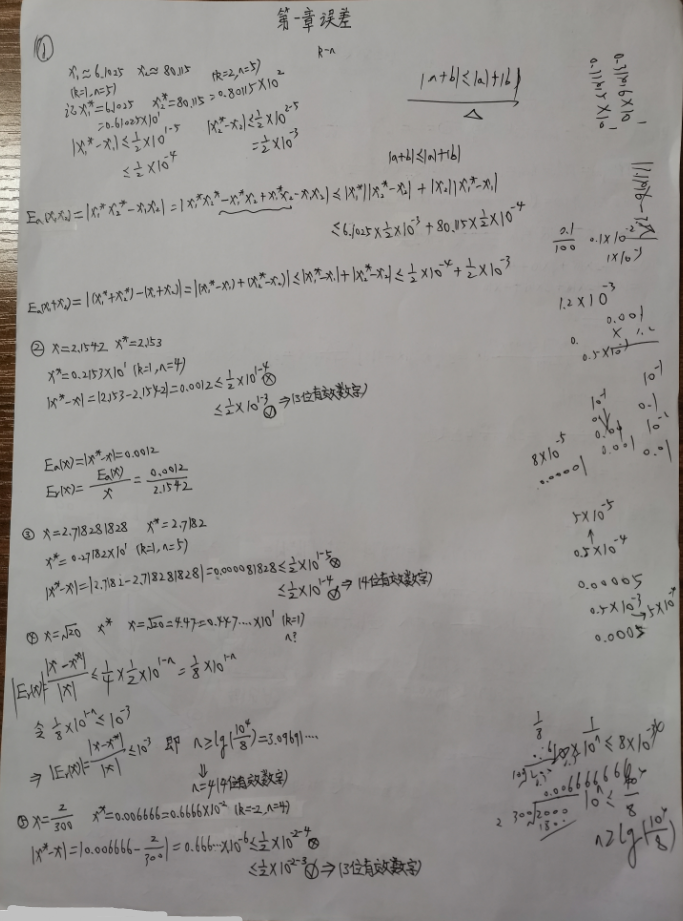 第一章 误差
①
k-n
x₁≈6.1025 x₂≈80.115 (k=2,n=5)
(k=1,n=5)
记x₁*=6.1025 x₂*=80.115=0.80115×10²
=0.61025×10¹
|x₁*-x₁|≤½×10¹⁻⁵ |x₂*-x₂|≤½×10²⁻⁵
≤½×10⁻⁴ =½×10⁻³
|a+b|≤|a|+|b|
△
|a+b|≤|a|+|b|
Ea(x₁x₂)=|x₁*x₂*-x₁x₂|=|x₁*x₂*-x₁*x₂+x₁*x₂-x₁x₂|≤|x₁*||x₂*-x₂|+|x₂||x₁*-x₁|
≤6.1025×½×10⁻³+80.115×½×10⁻⁴
Ea(x₁+x₂)=|(x₁*+x₂*)-(x₁+x₂)|=|(x₁*-x₁)+(x₂*-x₂)|≤|x₁*-x₁|+|x₂*-x₂|≤½×10⁻⁴+½×10⁻³
② x=2.1542 x*=2.153
x*=0.2153×10¹ (k=1,n=4)
|x*-x|=|2.153-2.1542|=0.0012≤½×10¹⁻⁴ⓧ
≤½×10¹⁻³✓⇒(3位有效数字)
Ea(x)=|x*-x|=0.0012
Er(x)=Ea(x)/x=0.0012/2.1542
③ x=2.718281828 x*=2.7182
x*=0.27182×10¹ (k=1,n=5)
|x*-x|=|2.7182-2.718281828|=0.000081828≤½×10¹⁻⁵ⓧ
≤½×10¹⁻⁴✓⇒(4位有效数字)
④ x=√20 x* x=√20=4.47=0.447....×10¹ (k=1)
n?
|Er(x)|=|x-x*|/|x|≤¼×½×10¹⁻ⁿ=⅛×10¹⁻ⁿ
令⅛×10¹⁻ⁿ≤10⁻³
⇒|Er(x)|=|x-x*|/|x|≤10⁻³ 即 n≥lg(10⁴/8)=3.09691....
⇓
n=4(4位有效数字)
⑤ x=2/300 x*=0.006666=0.6666×10⁻² (k=-2,n=4)
|x*-x|=|0.006666-2/300|=0.666...×10⁻⁶≤½×10⁻²⁻⁴ⓧ
≤½×10⁻²⁻³✓⇒(3位有效数字)
0.1/100 0.1×10⁻²
1×10⁻³
1.2×10⁻³
0.001
0.5×10⁻³
10⁻¹
10⁻¹ 0.1
0.001 0.01
8×10⁻⁵
0.00001
5×10⁻⁵
↑
0.5×10⁻⁴
0.00005
0.5×10⁻³
→5×10⁻⁴
0.0005
1/8
10ⁿ≤
n≥lg(10⁴/8)